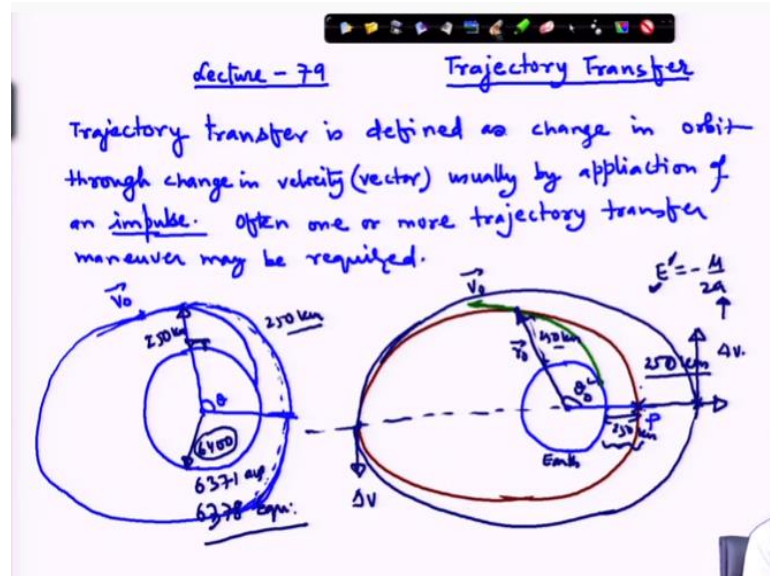 Lecture - 79
Trajectory Transfer
Trajectory transfer is defined as change in orbit
through change in velocity (vector) usually by appliaction of
an impulse. Often one or more trajectory transfer
maneuver may be required.
V0
250 km
250 km
θ
6400
6371 avg
6378 Equi.
V0
E' = - μ/2a
ΔV
250 km
r0
θ0
P
250 km
Earth
ΔV